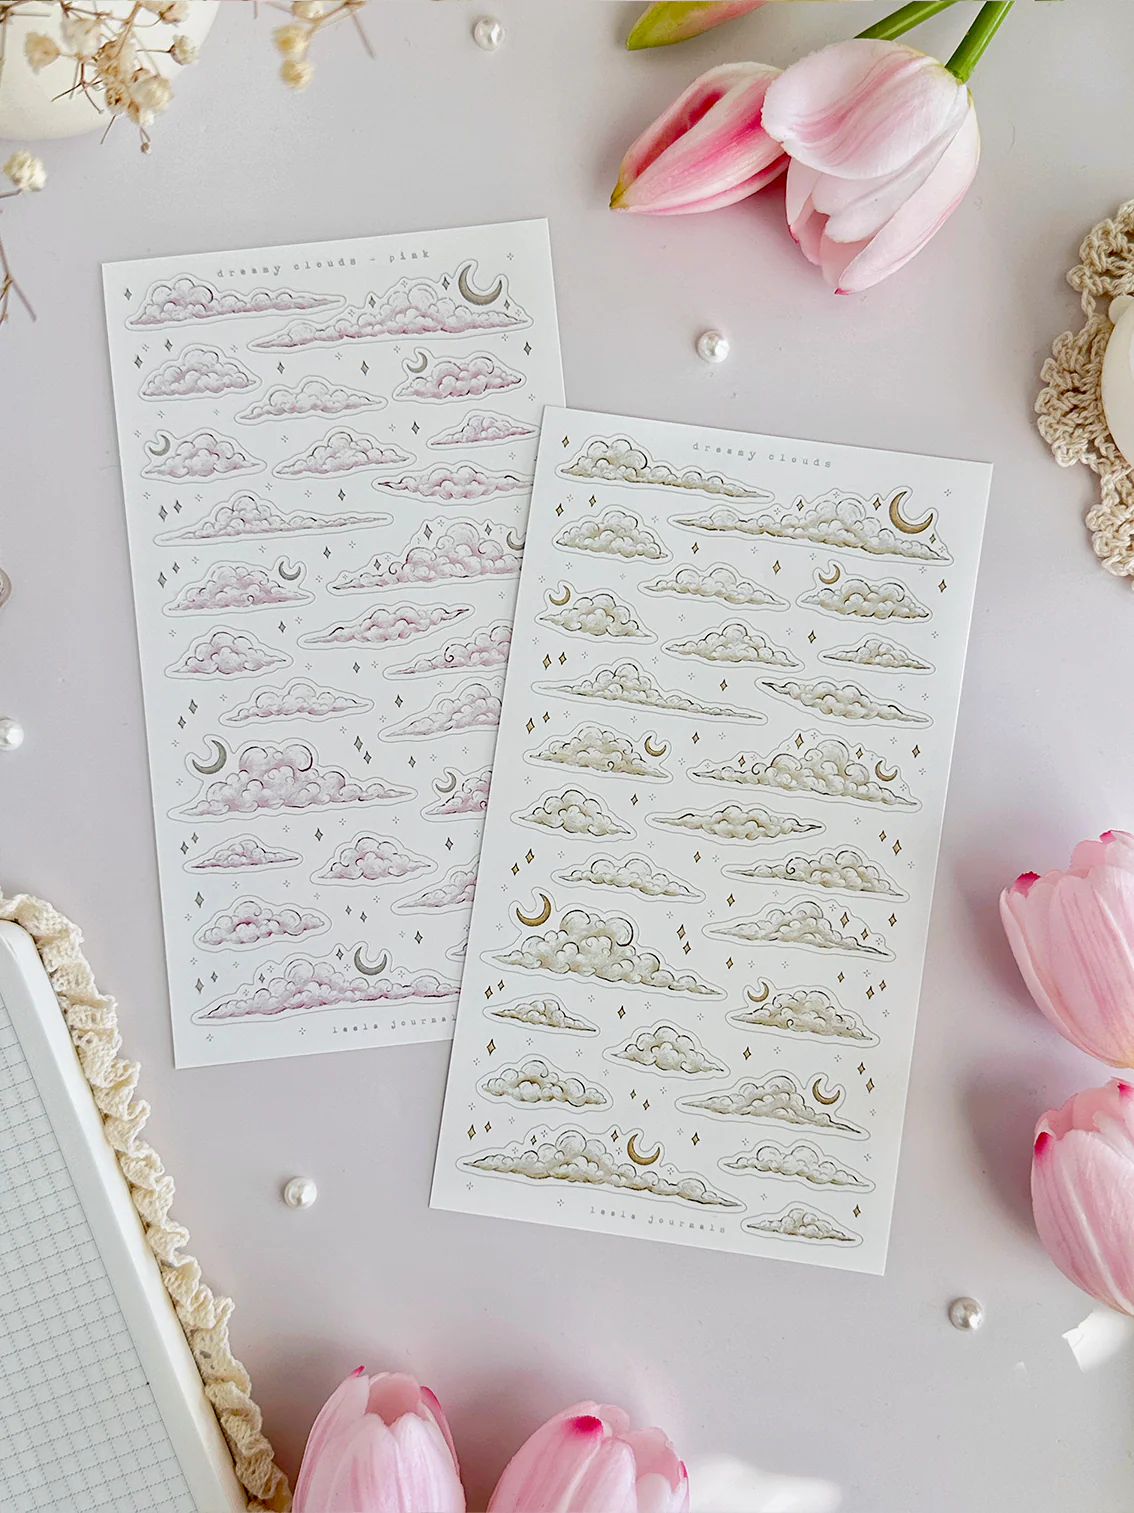 dreamy clouds - pink
leela journals
dreamy clouds
leela journals